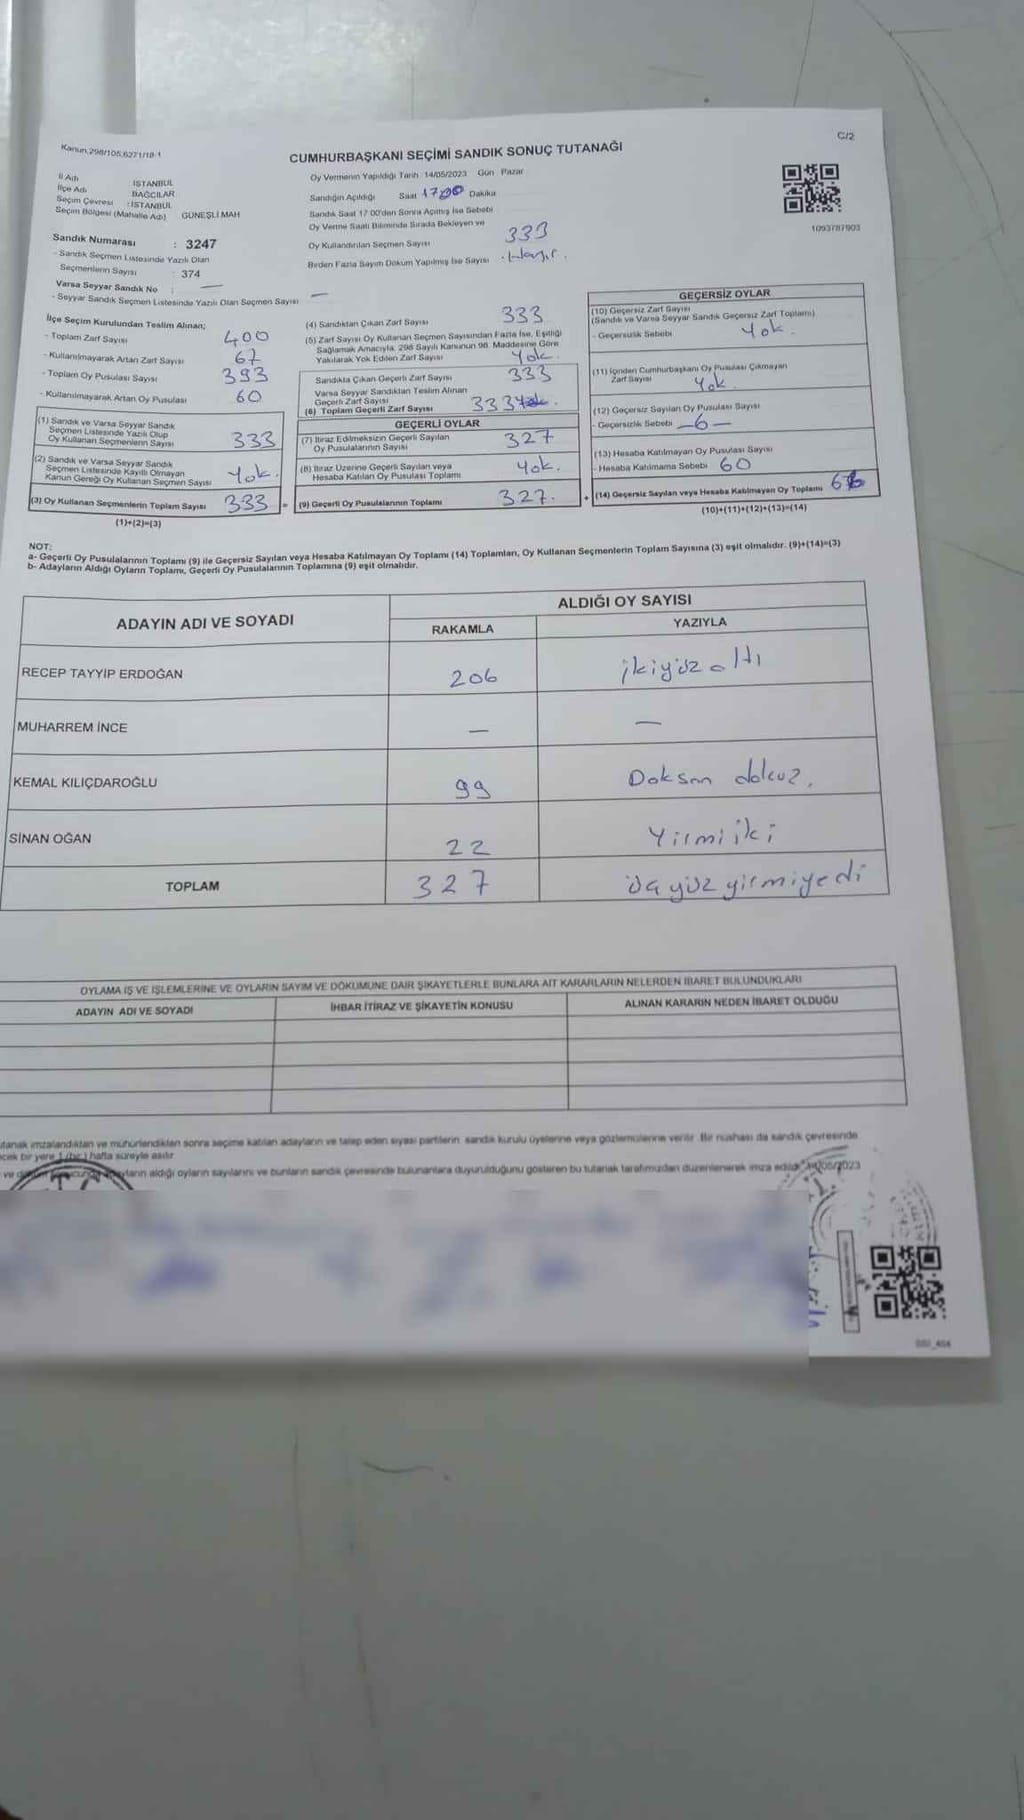 Kanun.298/105,6271/18-1
C/2
CUMHURBAŞKANI SEÇİMİ SANDIK SONUÇ TUTANAĞI
İl Adı İSTANBUL
İlçe Adı BAĞCILAR
Seçim Çevresi : İSTANBUL
Seçim Bölgesi (Mahalle Adı) GÜNEŞLİ MAH
Sandık Numarası : 3247
- Sandık Seçmen Listesinde Yazılı Olan
Seçmenlerin Sayısı : 374
Varsa Seyyar Sandık No : —
- Seyyar Sandık Seçmen Listesinde Yazılı Olan Seçmen Sayısı —
Oy Vermenin Yapıldığı Tarih : 14/05/2023 Gün Pazar
Sandığın Açıldığı Saat 17:00 Dakika
Sandık Saat 17:00'den Sonra Açılmış İse Sebebi
Oy Verme Saati Bitiminde Sırada Bekleyen ve
Oy Kullandırılan Seçmen Sayısı 333
Birden Fazla Sayım Döküm Yapılmış İse Sayısı Hayır.
1093787903
İlçe Seçim Kurulundan Teslim Alınan;
- Toplam Zarf Sayısı 400
- Kullanılmayarak Artan Zarf Sayısı 67
- Toplam Oy Pusulası Sayısı 393
- Kullanılmayarak Artan Oy Pusulası 60
(1) Sandık ve Varsa Seyyar Sandık
Seçmen Listesinde Yazılı Olup
Oy Kullanan Seçmenlerin Sayısı 333
(2) Sandık ve Varsa Seyyar Sandık
Seçmen Listesinde Kayıtlı Olmayan
Kanun Gereği Oy Kullanan Seçmen Sayısı Yok.
(3) Oy Kullanan Seçmenlerin Toplam Sayısı 333 =
(1)+(2)=(3)
(4) Sandıktan Çıkan Zarf Sayısı 333
(5) Zarf Sayısı Oy Kullanan Seçmen Sayısından Fazla İse, Eşitliği
Sağlamak Amacıyla, 298 Sayılı Kanunun 98. Maddesine Göre
Yakılarak Yok Edilen Zarf Sayısı Yok.
Sandıkta Çıkan Geçerli Zarf Sayısı 333
Varsa Seyyar Sandıktan Teslim Alınan
Geçerli Zarf Sayısı
(6) Toplam Geçerli Zarf Sayısı 333
GEÇERLİ OYLAR
(7) İtiraz Edilmeksizin Geçerli Sayılan
Oy Pusulalarının Sayısı 327
(8) İtiraz Üzerine Geçerli Sayılan veya
Hesaba Katılan Oy Pusulası Toplamı Yok.
(9) Geçerli Oy Pusulalarının Toplamı 327. +
GEÇERSİZ OYLAR
(10) Geçersiz Zarf Sayısı
(Sandık ve Varsa Seyyar Sandık Geçersiz Zarf Toplamı)
- Geçersizlik Sebebi Yok.
(11) İçinden Cumhurbaşkanı Oy Pusulası Çıkmayan
Zarf Sayısı Yok.
(12) Geçersiz Sayılan Oy Pusulası Sayısı
- Geçersizlik Sebebi —6—
(13) Hesaba Katılmayan Oy Pusulası Sayısı
- Hesaba Katılmama Sebebi 60
(14) Geçersiz Sayılan veya Hesaba Katılmayan Oy Toplamı
(10)+(11)+(12)+(13)=(14)
NOT:
a- Geçerli Oy Pusulalarının Toplamı (9) ile Geçersiz Sayılan veya Hesaba Katılmayan Oy Toplamı (14) Toplamları, Oy Kullanan Seçmenlerin Toplam Sayısına (3) eşit olmalıdır. (9)+(14)=(3)
b- Adayların Aldığı Oyların Toplamı, Geçerli Oy Pusulalarının Toplamına (9) eşit olmalıdır.
ADAYIN ADI VE SOYADI ALDIĞI OY SAYISI
RAKAMLA YAZIYLA
RECEP TAYYİP ERDOĞAN 206 ikiyüz altı
MUHARREM İNCE — —
KEMAL KILIÇDAROĞLU 99 Doksan dokuz.
SİNAN OĞAN 22 Yirmi iki
TOPLAM 327 üç yüz yirmiyedi
OYLAMA İŞ VE İŞLEMLERİNE VE OYLARIN SAYIM VE DÖKÜMÜNE DAİR ŞİKAYETLERLE BUNLARA AİT KARARLARIN NELERDEN İBARET BULUNDUKLARI
ADAYIN ADI VE SOYADI İHBAR İTİRAZ VE ŞİKAYETİN KONUSU ALINAN KARARIN NEDEN İBARET OLDUĞU
utanak imzalandıktan ve mühürlendikten sonra seçime katılan adayların ve talep eden siyasi partilerin sandık kurulu üyelerine veya gözlemcilerine verilir. Bir nüshası da sandık çevresinde
cek bir yere 1 (bir) hafta süreyle asılır.
aldığı oyların sayılarını ve bunların sandık çevresinde bulunanlara duyurulduğunu gösteren bu tutanak tarafımızdan düzenlenerek imza edildi.